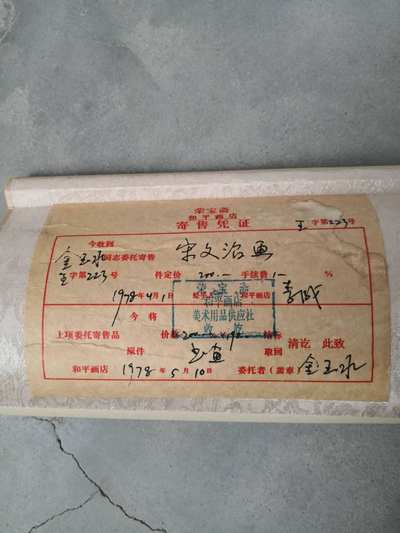 荣宝斋
和平画店
寄售凭证
王字第223号
今收到
金玉水同志委托寄售 宋文治画
王字第223号 件定价 200.— 手续费 1— %
1978年4月1日 和平画店 李
今将
荣宝斋
和平画店
美术用品供应社
上项委托寄售品 价款 结标
原件 取回 清讫 此致
和平画店 1978年5月10日 委托者(盖章) 金玉水